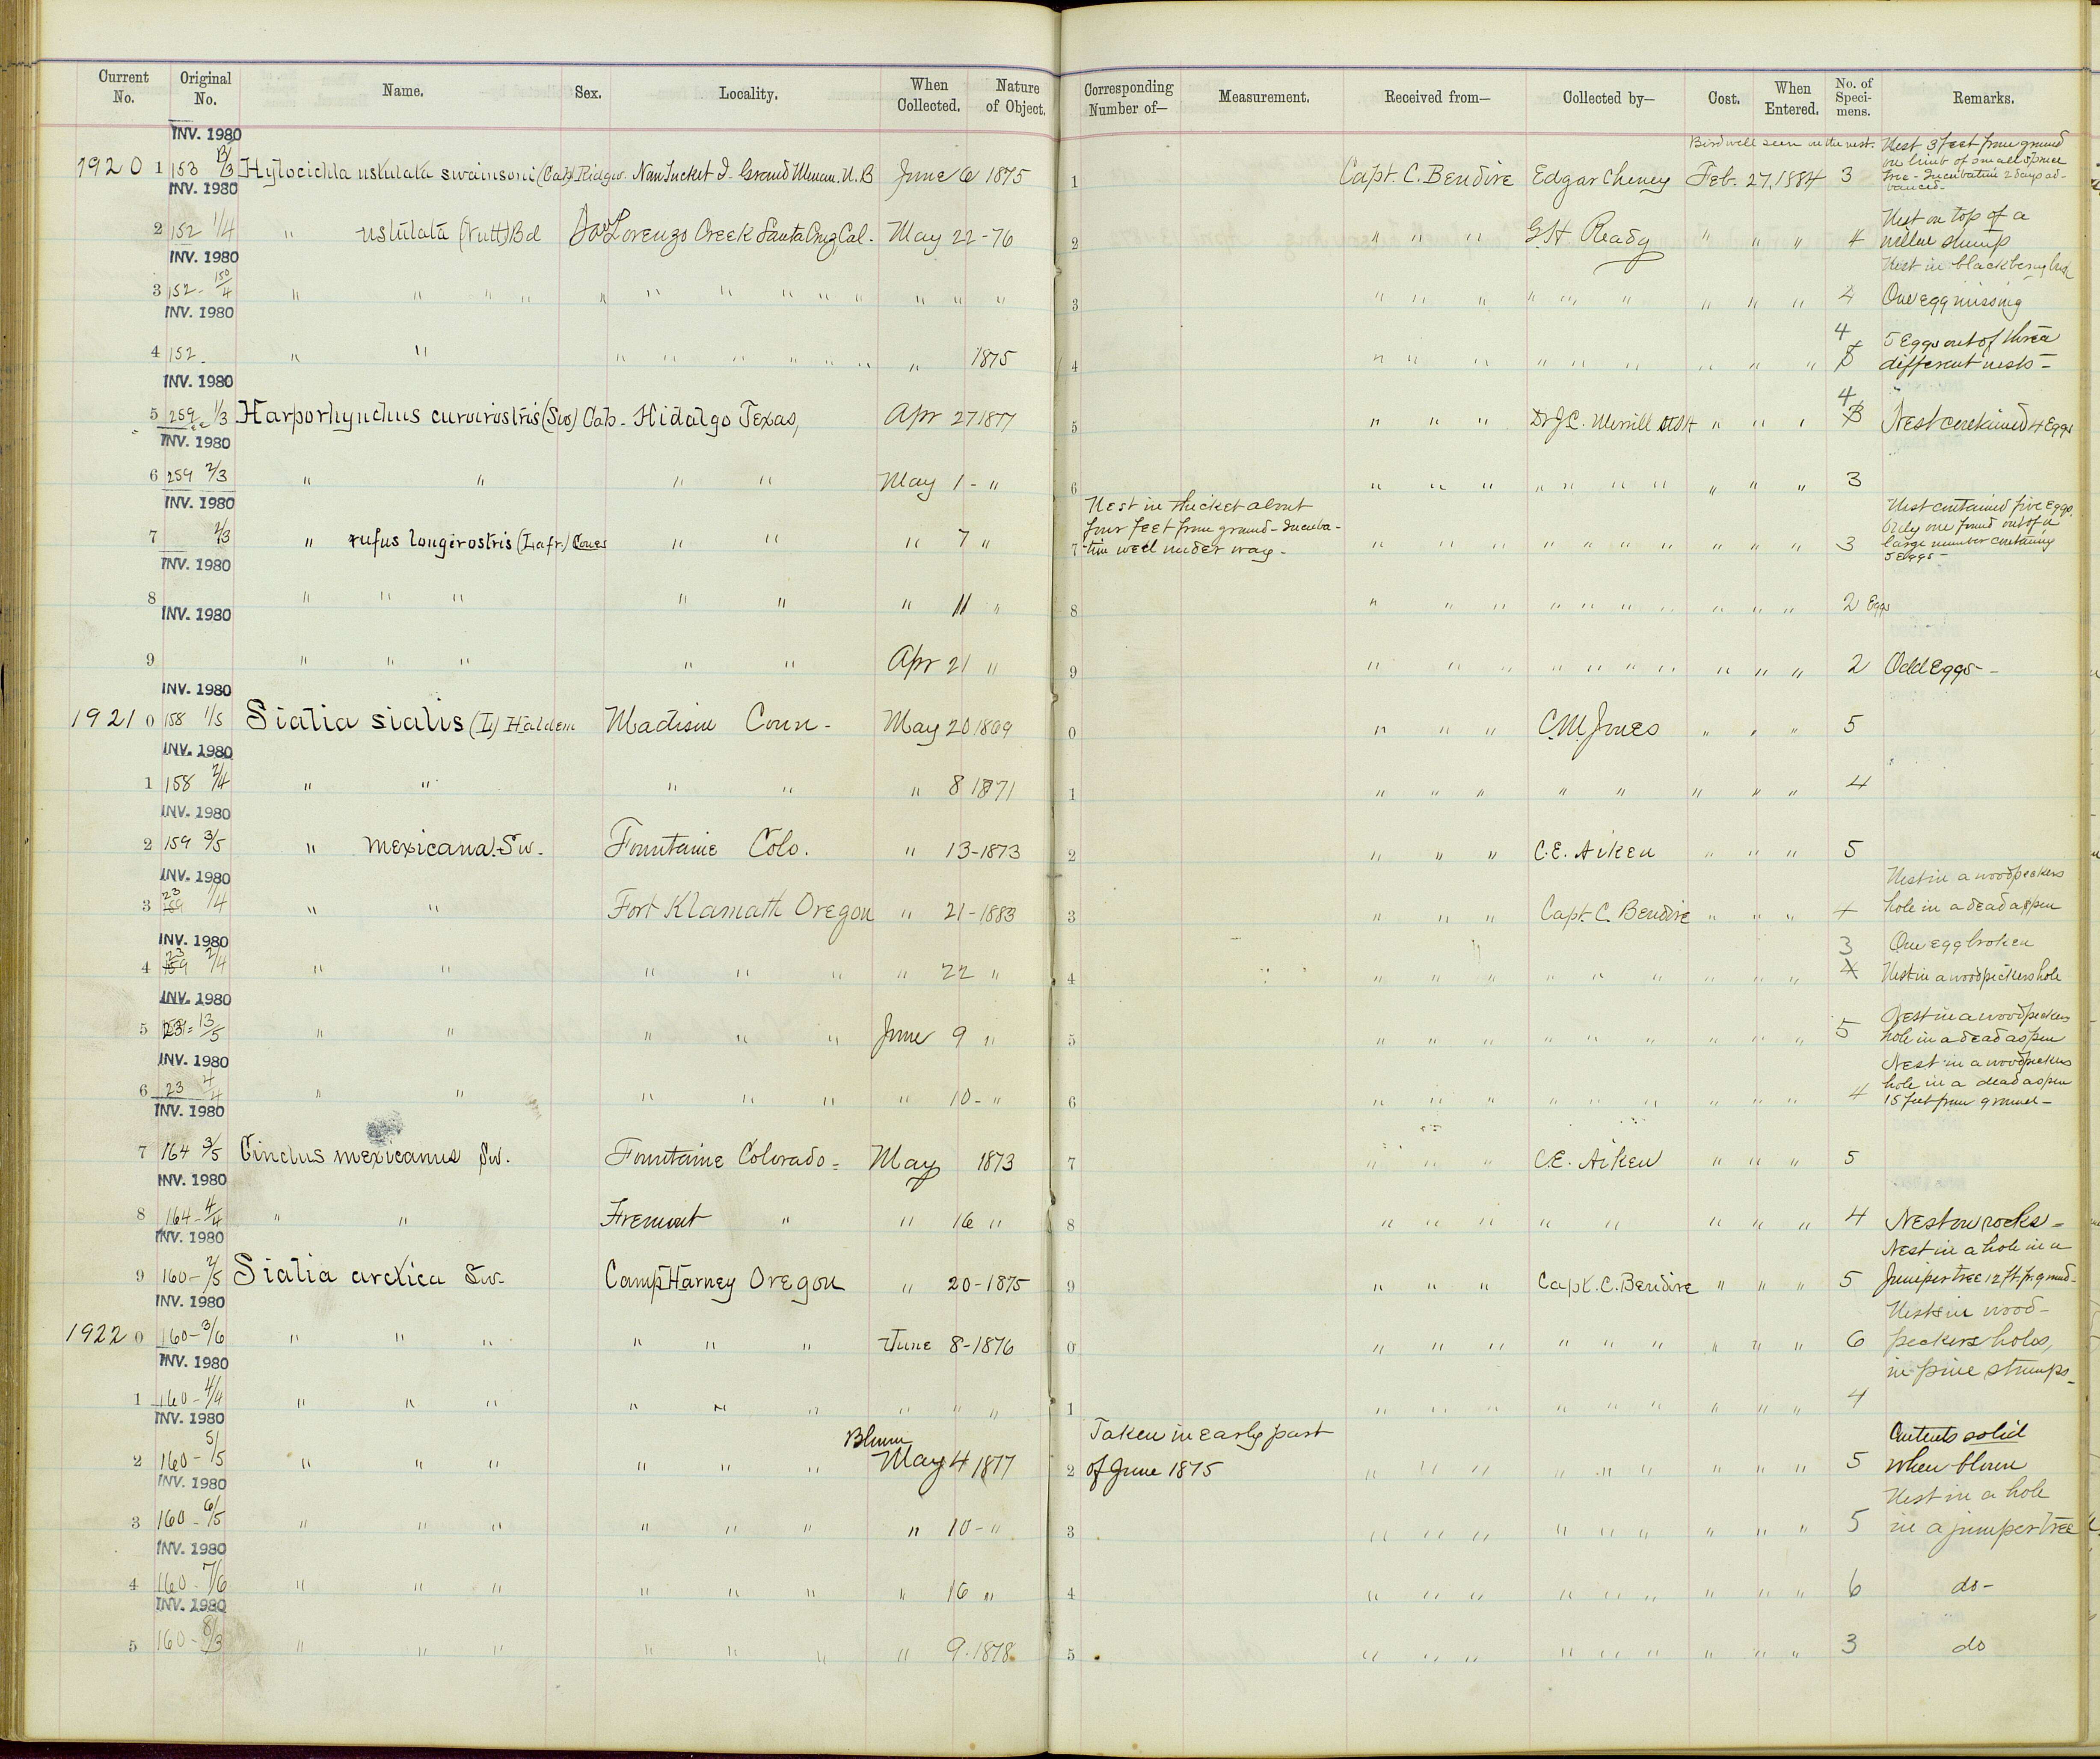 Current No. Original No. Name. Sex. Locality. When Collected. Nature of Object. Corresponding Number of— Measurement. Received from— Collected by— Cost. When Entered. No. of Speci-mens. Remarks.
INV. 1980
Bird well seen on the nest. Nest 3 feet from ground
on limb of small spruce
1920 1 153 1/3 Hylocichla ustulata swainsoni (Cab) Ridgw. Nantucket I. Grand Menan. N. B June 6 1875 1 Capt. C. Bendire Edgar Cheney Feb. 27, 1884 3 tree - Incubation 2 days ad-
vanced-
INV. 1980
Nest on top of a
2 152 1/4 " ustulata (Nutt) Bd San Lorenzo Creek Santa Cruz, Cal. May 22 - 76 2 " " " G.H. Ready " " " 4 willow stump
INV. 1980
Nest in blackberry bush
3 152 - " " " " " " " " " " " " " 3 " " " " " " " " " 4 One egg missing
INV. 1980
4 5 Eggs out of three
4 152 - " " " " " " " " " 1875 4 " " " " " " " " " 5 different nests -
INV. 1980
4
5 259 1/3 Harporhynchus curvirostris (Sw) Cab - Hidalgo Texas, Apr 27 1877 5 " " " Dr J.C. Merrill USA " " " 3 Nest contained 4 Eggs
INV. 1980
6 259 2/3 " " " " May 1 - " 6 " " " " " " " " " " 3
INV. 1980
Nest in thicket about Nest contained five Eggs.
four feet from ground - Incuba- Only one found out of a
7 2/3 " rufus longirostris (Lafr.) Coues " " " 7 " 7 -tion well under way - " " " " " " " " " " 3 large number containing
5 Eggs -
INV. 1980
8 " " " " " " 11 " 8 " " " " " " " " " " 2 Eggs
INV. 1980
9 " " " " " Apr 21 " 9 " " " " " " " " " " 2 Odd Eggs -
INV. 1980
1921 0 158 1/5 Sialia sialis (L) Haldem Madison Conn - May 20 1869 0 " " " C.M. Jones " " " 5
INV. 1980
1 158 2/4 " " " " " 8 1871 1 " " " " " " " " 4
INV. 1980
2 159 3/5 " mexicana. Sw. Fountaine Colo. " 13 - 1873 2 " " " C.E. Aiken " " " 5
INV. 1980
23 Nest in a woodpeckers
3 159 1/4 " " Fort Klamath Oregon " 21 - 1883 3 " " " Capt. C. Bendire " " " 4 hole in a dead aspen
INV. 1980
23 3 One egg broken
4 159 2/4 " " " " " " 22 " 4 " " " " " " " " " 4 Nest in a woodpeckers hole
INV. 1980
Nest in a woodpeckers
5 23 " " " " " June 9 " 5 " " " " " " " " " 5 hole in a dead aspen
INV. 1980
Nest in a woodpeckers
hole in a dead aspen
6 23 4/4 " " " " " " 10 - " 6 " " " " " " " " " 4 15 feet from ground -
INV. 1980
7 164 3/5 Cinclus mexicanus Sw. Fountaine Colorado - May 1873 7 " " " C.E. Aiken " " " 5
INV. 1980
8 164 - 4/4 " " Fremont " " 16 " 8 " " " " " " " " 4 Nest on rocks -
INV. 1980
Nest in a hole in a
9 160 - 2/5 Sialia arctica Sw. Camp Harney Oregon " 20 - 1875 9 " " " Capt. C. Bendire " " " 5 Juniper tree 12 ft. fr. ground-
INV. 1980
Nests in wood-
1922 0 160 - 3/6 " " " " " " June 8 - 1876 0 " " " " " " " " " 6 peckers holes,
INV. 1980
in pine stumps -
1 160 - 4/4 " " " " " " " " " 1 " " " " " " " " " 4
INV. 1980
Blown Taken in early part Contents solid
2 160 - 5/5 " " " " " " May 4 1877 2 of June 1875 " " " " " " " " " 5 when blown
INV. 1980
Nest in a hole
3 160 - 6/5 " " " " " " " 10 - " 3 " " " " " " " " " 5 in a juniper tree
INV. 1980
4 160 - 7/6 " " " " " " " 16 " 4 " " " " " " " " " 6 do -
INV. 1980
5 160 - 8/3 " " " " " " " 9 - 1878 5 " " " " " " " " " 3 do